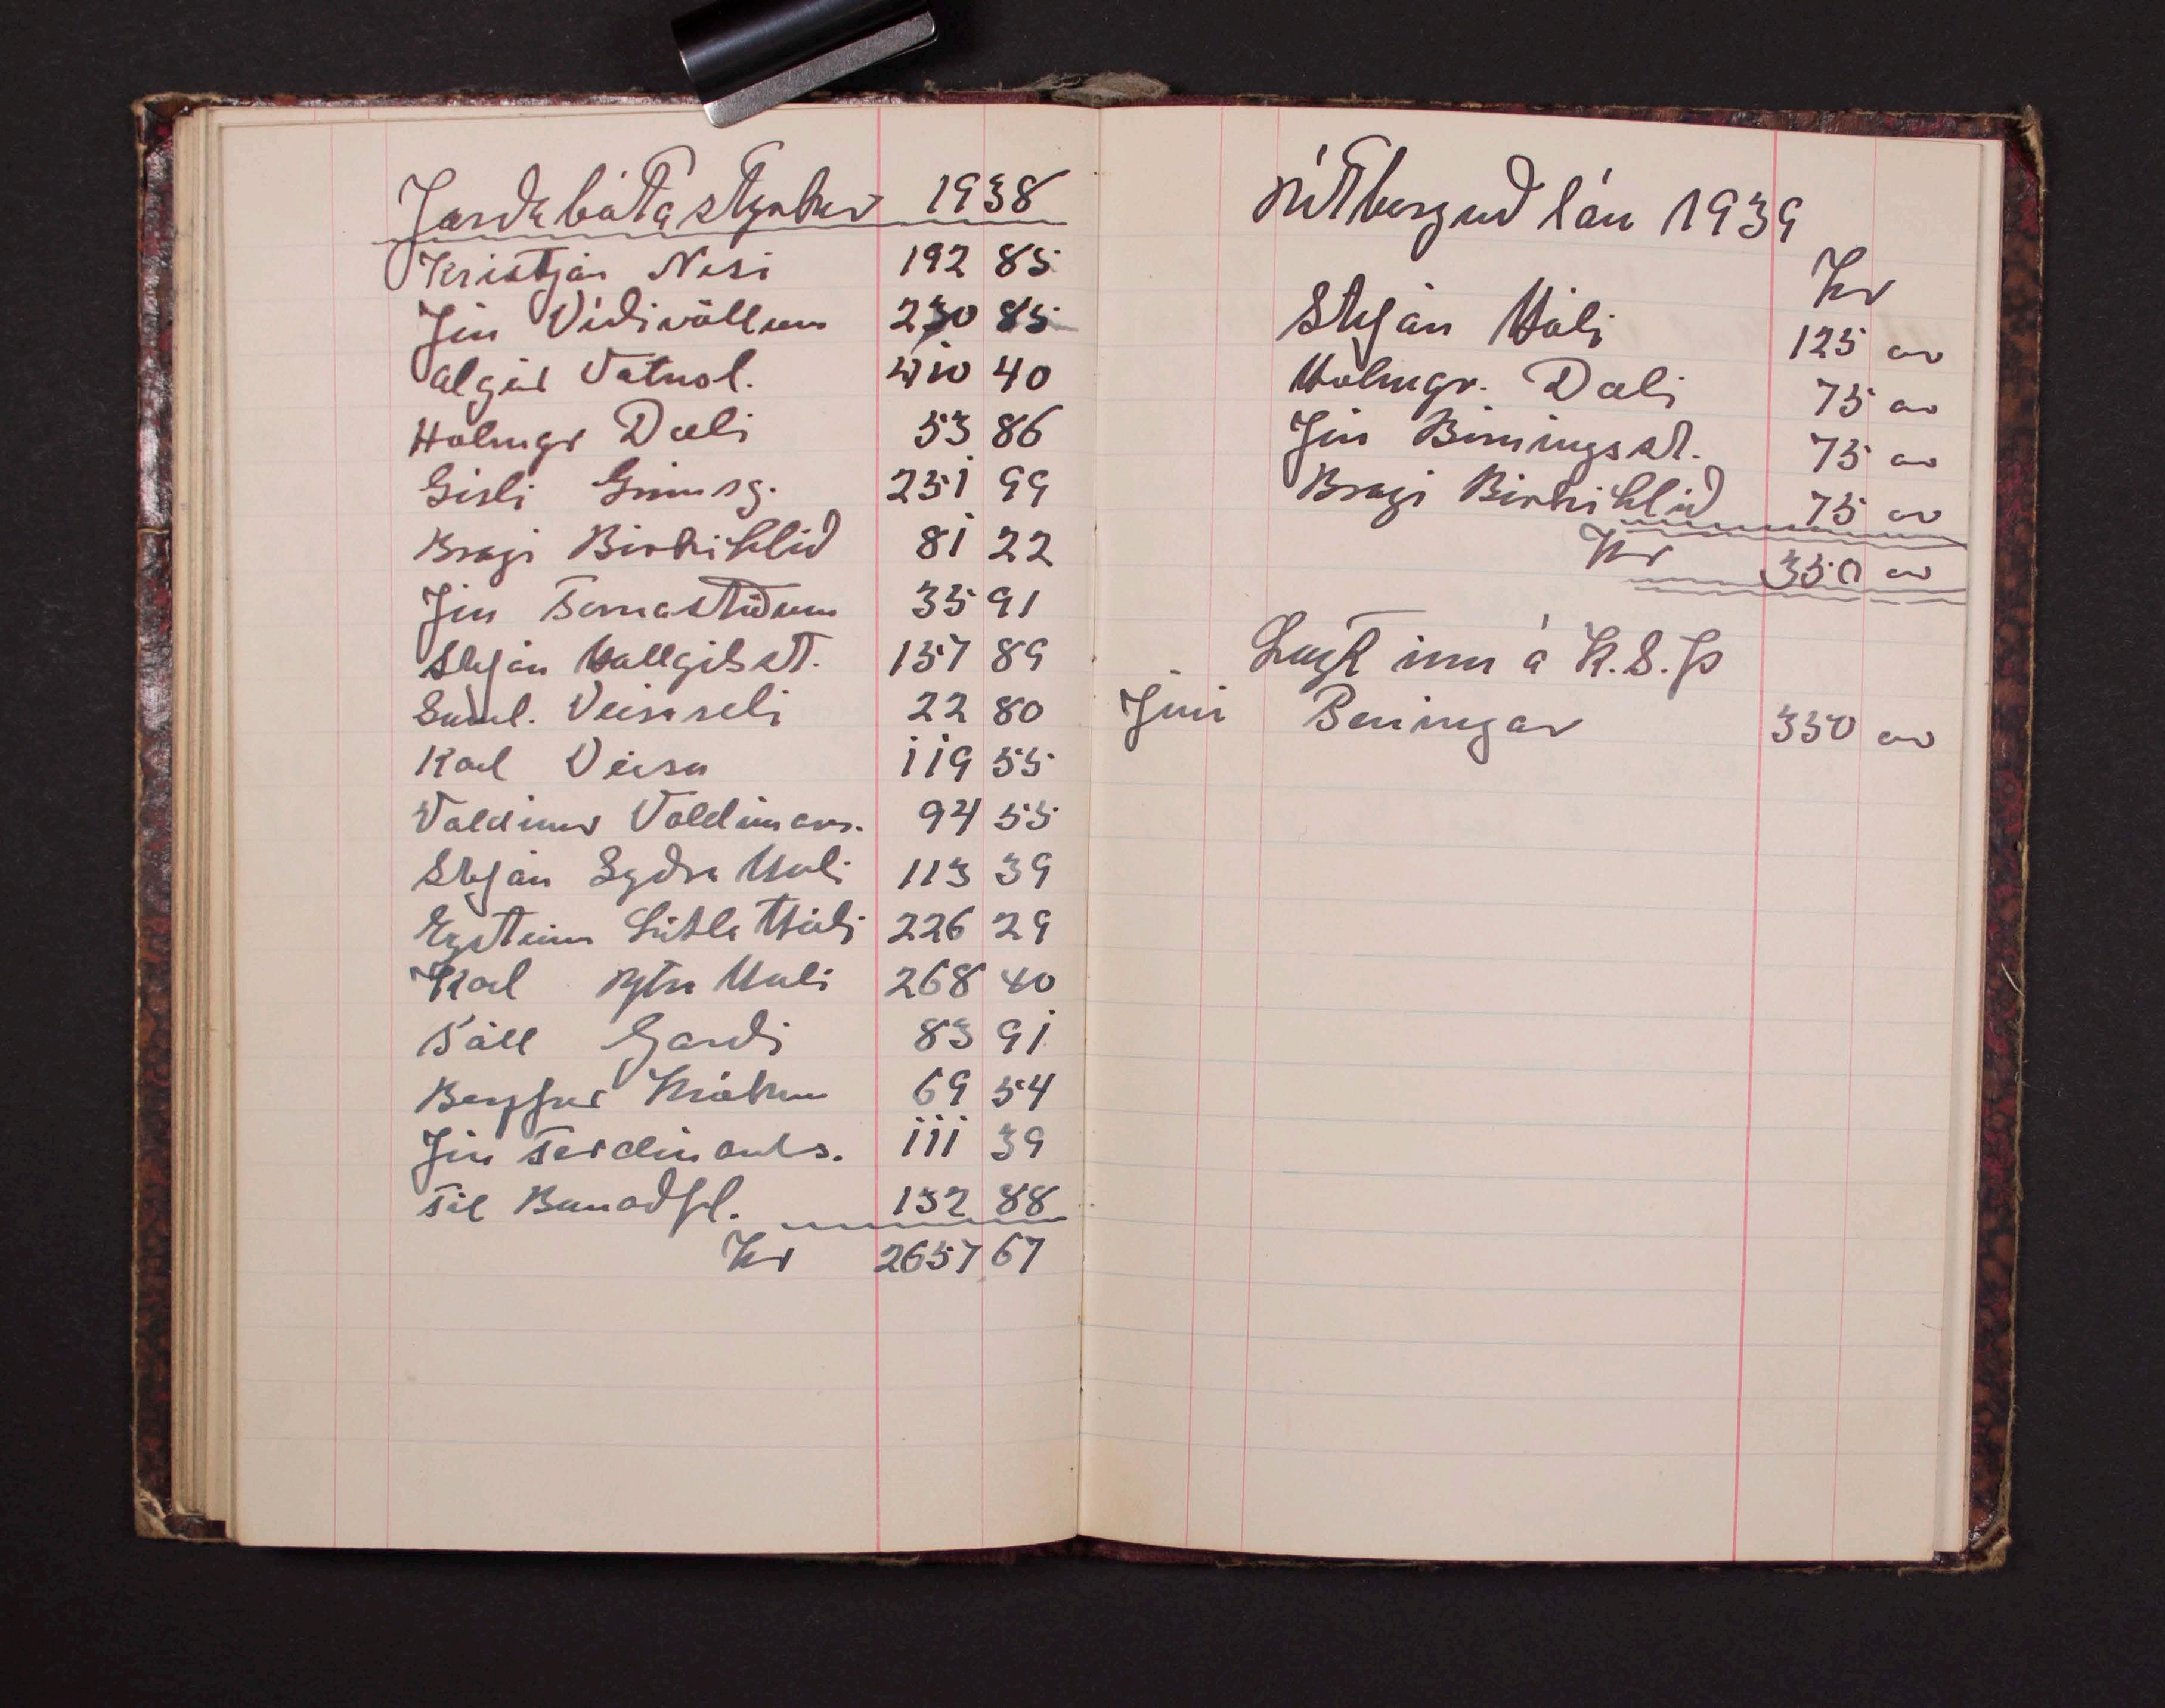 Jarðabótastyrkur 1938
Kristján Nesi 192 85
Jón Víðivöllum 230 85
Algeir Vatnsl. 410 40
Hólmgr Dæli 53 86
Gísli Grímsg. 251 99
Bragi Birkihlíð 81 22
Jón Fornastöðum 35 91
Stefán Hallgilsst. 157 89
Veisuseli 22 80
Karl Veisu 119 55
Valdimar Valdimars. 94 55
Stefán Syðra Hóli 113 39
Eysteinn Litla Hóli 226 29
Karl Ytra Hóli 268 40
Páll Garði 83 91
Bergþór Krókum 69 54
Jón Ferdinants. 111 39
Til Bunaðfl. 132 88
Kr 2657 67
Útborguð lán 1939
Kr
Stefán Hóli 125 00
Hólmgr. Dæli 75 00
Jón Birningsst. 75 00
Bragi Birkihlíð 75 00
Kr 350 00
Lagt inn á K.S.Þ
Jóni Peningar 350 00